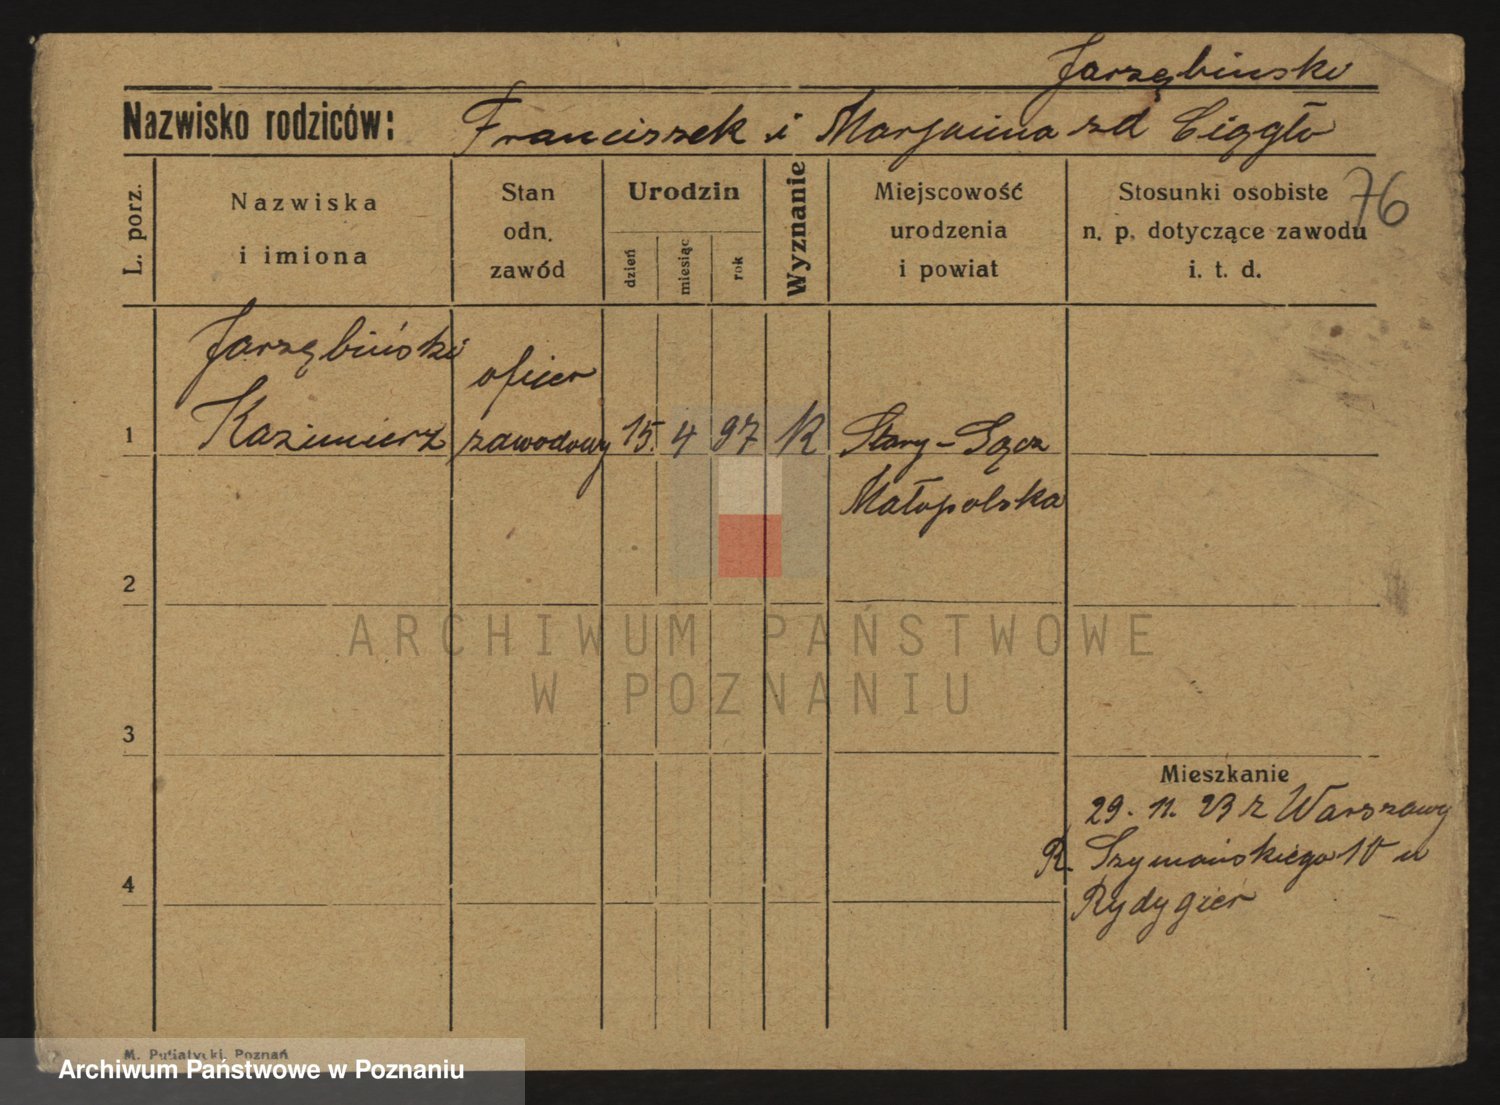 Jarzębinski
Nazwisko rodziców: Franciszek i Marjanna zd Ciągło
L. porz.
Nazwiska
i imiona
Stan
odn.
zawód
Urodzin
dzień
miesiąc
rok
Wyznanie
Miejscowość
urodzenia
i powiat
Stosunki osobiste
n. p. dotyczące zawodu
i. t. d.
76
Jarzębiński
oficer
1 Kazimierz zawodowy 15. 4 97 R Stary-Sącz
Małopolska
2
ARCHIWUM PAŃSTWOWE
W POZNANIU
3
Mieszkanie
29. 11. 23 z Warszawy
R. Szymańskiego 10 u
4
Rydygier
M. Putiatycki, Poznań
Archiwum Państwowe w Poznaniu